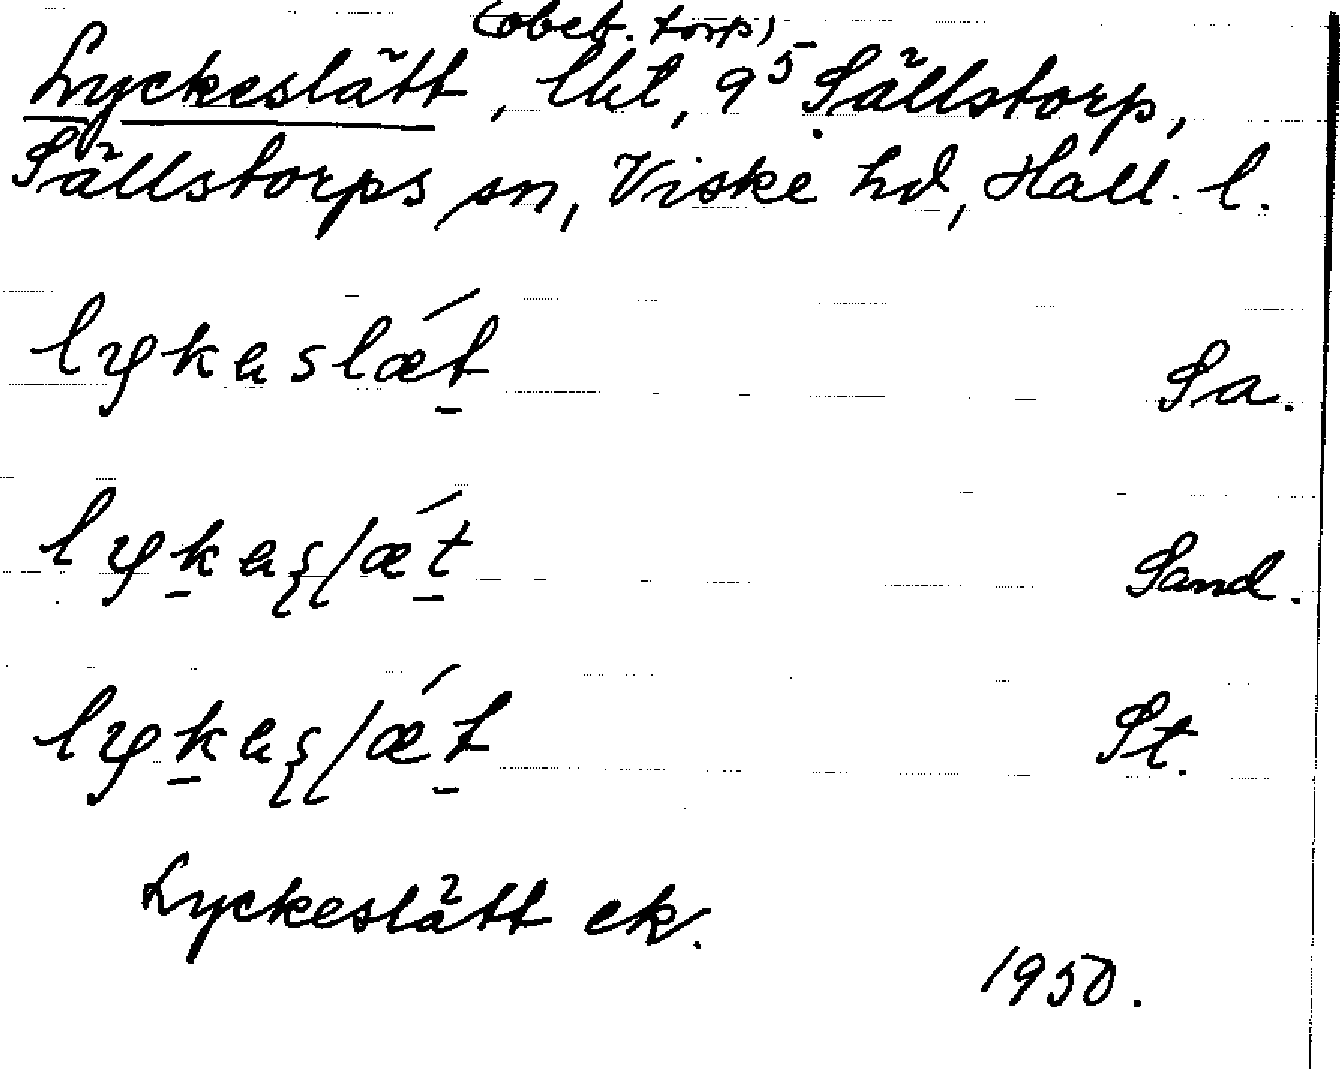 (obeb. torp)
Lyckeslätt, lht, 9⁵ Sällstorp,
Sällstorps sn, Viske hd, Hall. l.
lykaslǽt Sa.
lykaslǽt Sand.
lykaslǽt St.
Lyckeslätt ek.
1950.